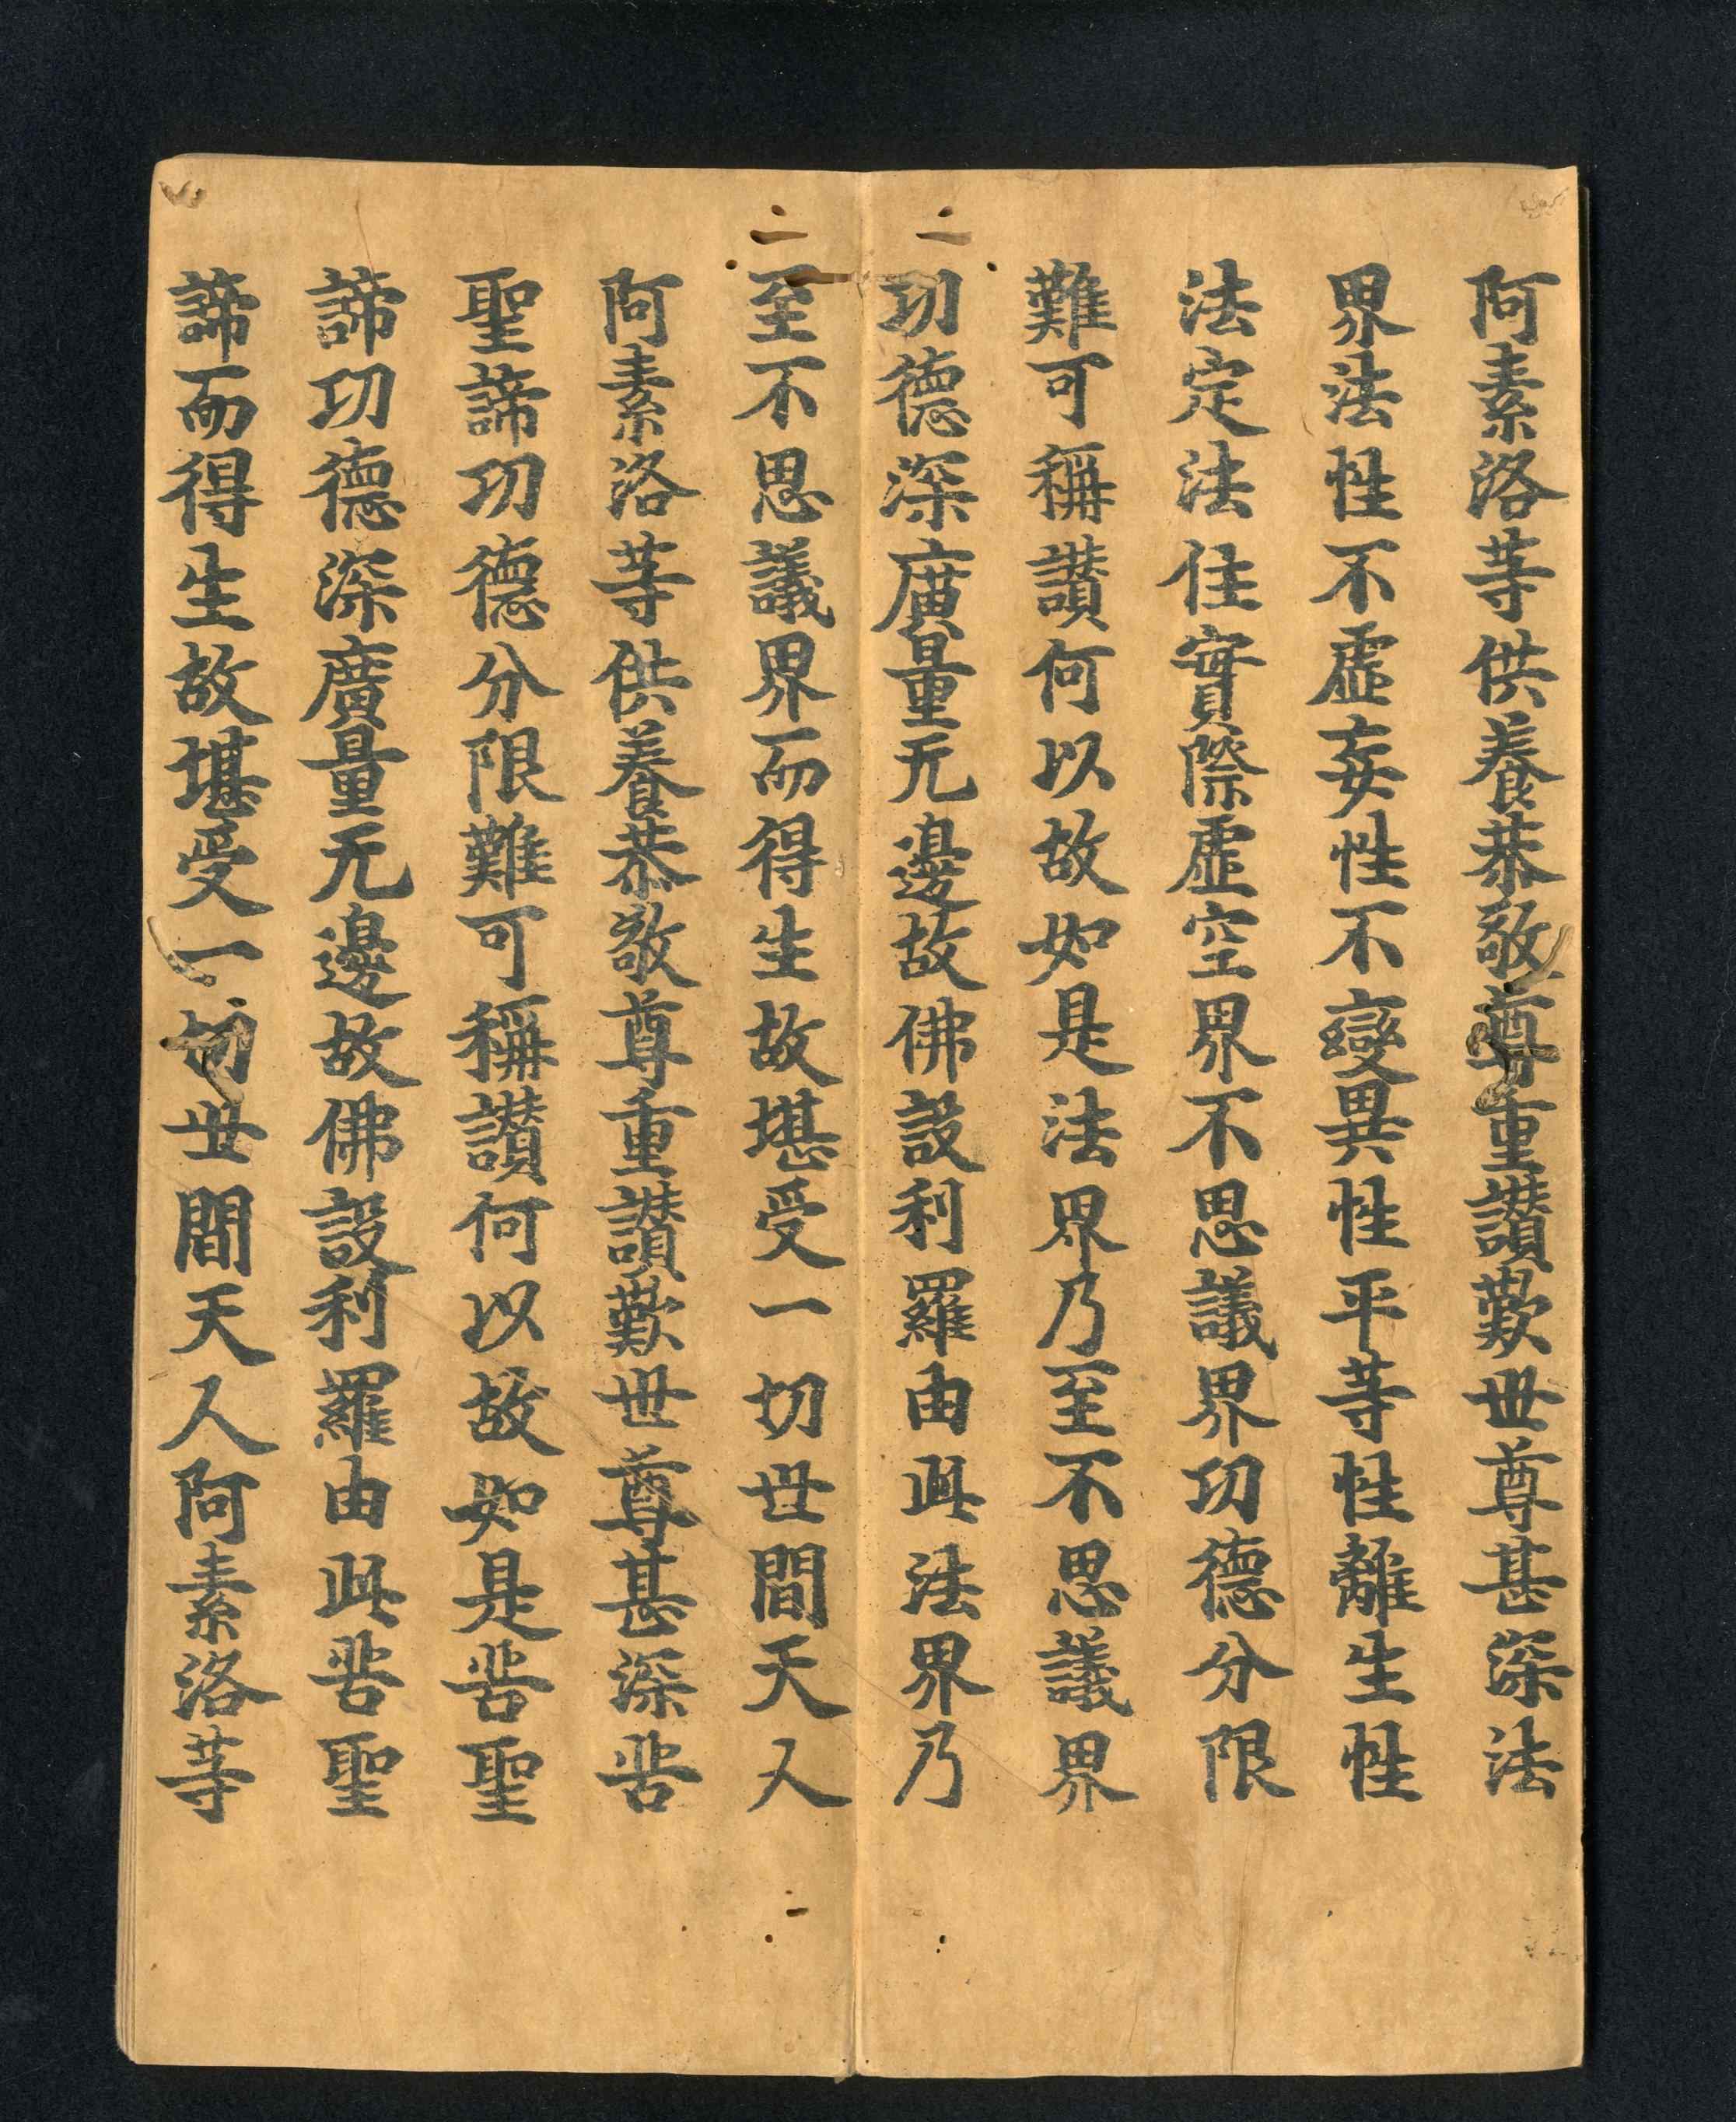 阿素洛等供養恭敬尊重讚歎世尊甚深法
界法性不虛妄性不變異性平等性離生性
法定法住實際虛空界不思議界功德分限
難可稱讚何以故如是法界乃至不思議界
功德深廣量无邊故佛設利羅由此法界乃
至不思議界而得生故堪受一切世間天人
阿素洛等供養恭敬尊重讚歎世尊甚深苦
聖諦功德分限難可稱讚何以故如是苦聖
諦功德深廣量无邊故佛設利羅由此苦聖
諦而得生故堪受一切世間天人阿素洛等